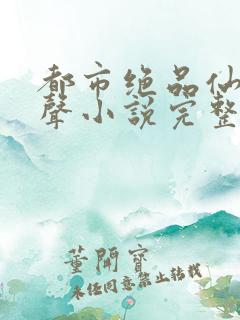 都市绝品仙
聲小說完整
董開寶
未经同意禁止转载